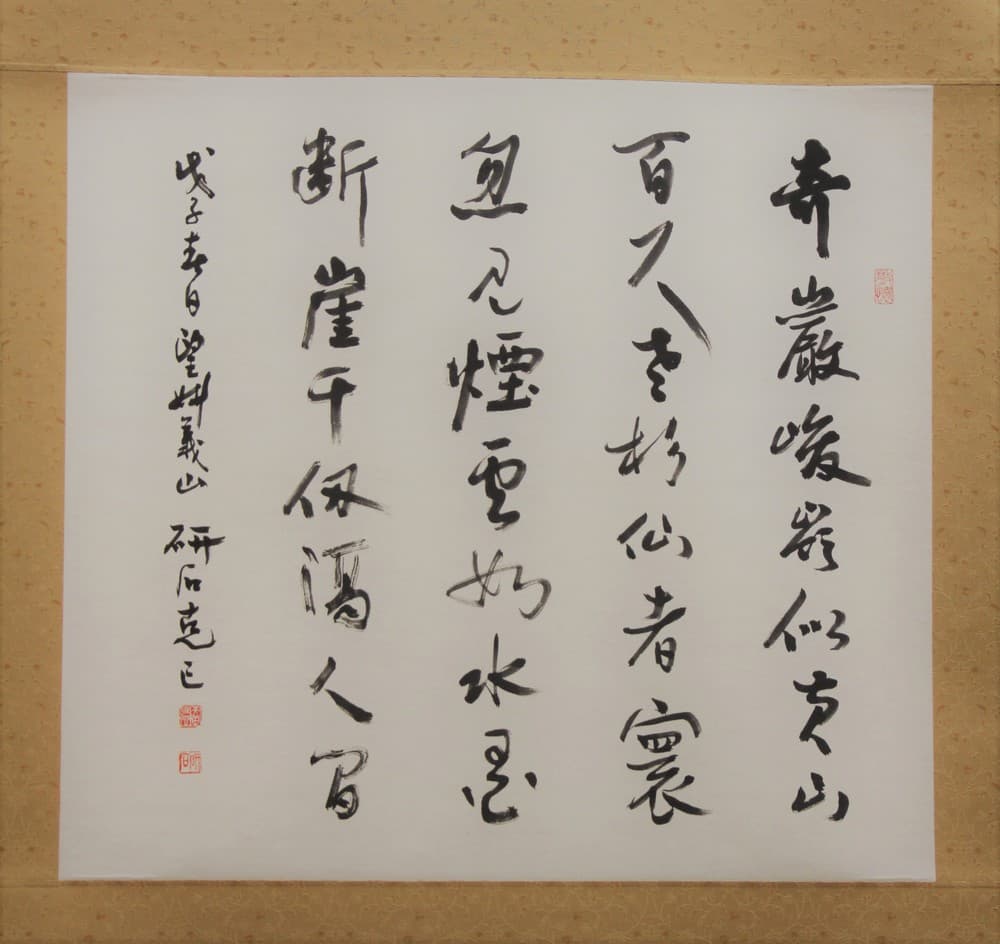 奇巖峻嶺似黄山
百尺老杉仙者寰
忽見煙雲如水墨
断崖千仭隔人間
戊子春日望妙義山 研石克己